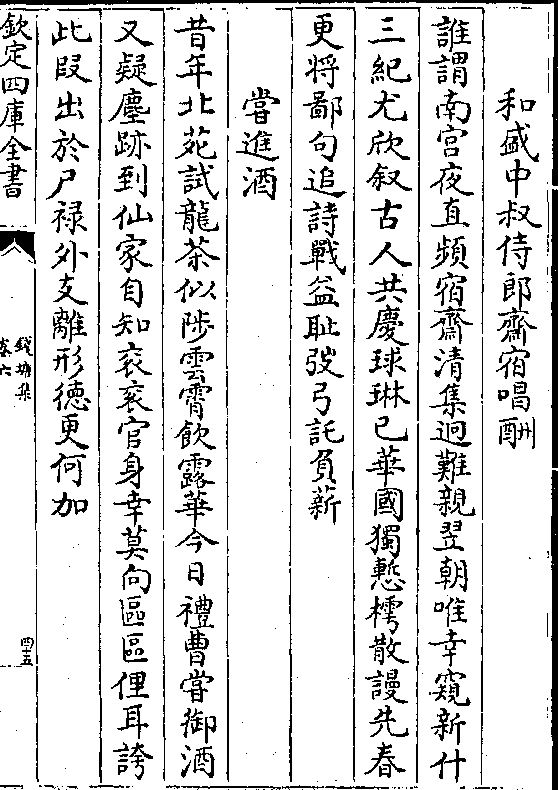 和盛中叔侍郎齋宿唱酬
誰謂南宮夜直頻宿齋清集迥難親翌朝唯幸窺新什
三紀尤欣叙古人共慶球琳已華國獨慙樗散謾先春
更将鄙句追詩戰益耻弢弓託負薪
嘗進酒
昔年北苑試龍茶似陟雲霄飲露華今日禮曹嘗御酒
又疑塵跡到仙家自知衮衮官身幸莫向區區俚耳誇
此段出於尸禄外支離形德更何加
欽定四庫全書
錢塘集
卷六
四五